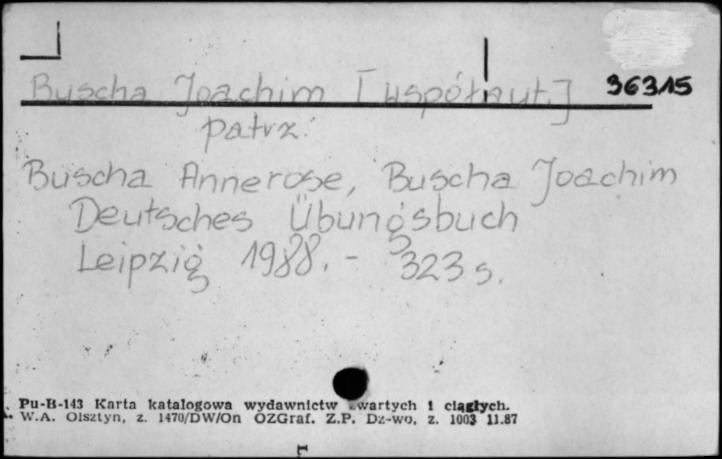 Buscha Joachim [współaut.] 36315
patrz:
Buscha Annerose, Buscha Joachim
Deutsches Übungsbuch
Leipzig 1988. - 323 s.
Pu-B-143 Karta katalogowa wydawnictw zwartych i ciągłych.
W.A. Olsztyn, z. 1470/DW/On OZGraf. Z.P. Dz-wo, z. 1003 11.87